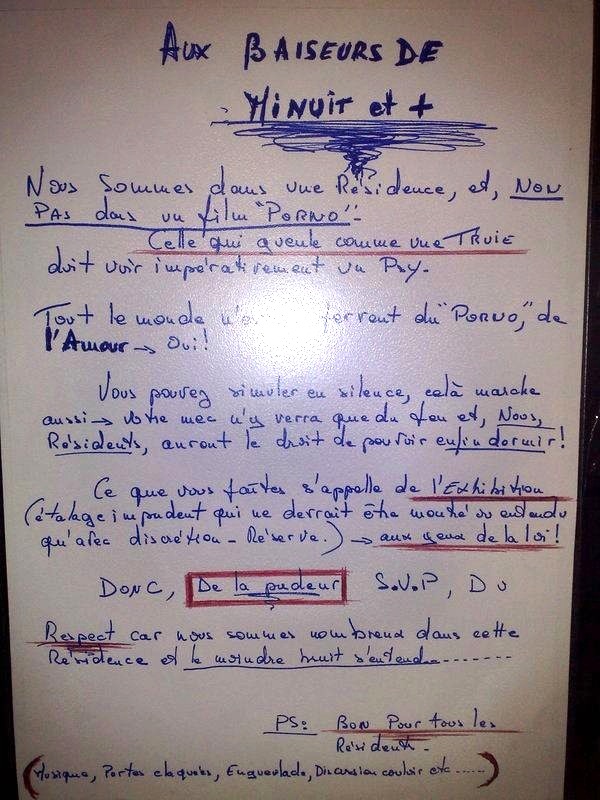 AUX BAISEURS DE
MINUIT et +
Nous Sommes dans une Résidence, et, NON
PAS dans un film "PORNO"-
Celle qui gueule comme une TRUIE
doit voir impérativement un Psy.
Tout le monde fervent du "PORNO," de
l'Amour → Oui!
Vous pouvez simuler en silence, celà marche
aussi → votre mec n'y verra que du feu et, Nous,
Résidents, auront le droit de pouvoir enfin dormir!
Ce que vous faîtes, s'appelle de l'Exhibition
(étalage impudent qui ne devrait être montré ou entendu
qu'avec discrétion - Réserve.) → aux yeux de la loi!
DONC, De la pudeur S.V.P, DU
Respect car nous sommes nombreux dans cette
Résidence et le moindre bruit s'entend........
PS: BON POUR tous les
Résidents-
(Musique, Portes claquées, Engueulade, Discussion couloir etc.....)